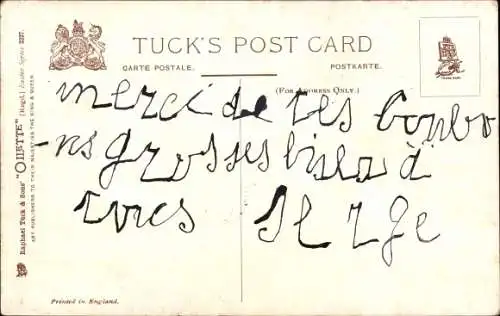 TUCK'S POST CARD
CARTE POSTALE.
POSTKARTE.
(FOR ADDRESS ONLY.)
merci de tes bonbo
-ns grosses bises à
tous Serge
Raphael Tuck & Sons' "OILETTE" (Regd.) Easter Series 2237.
ART PUBLISHERS TO THEIR MAJESTIES THE KING & QUEEN
Printed in England.